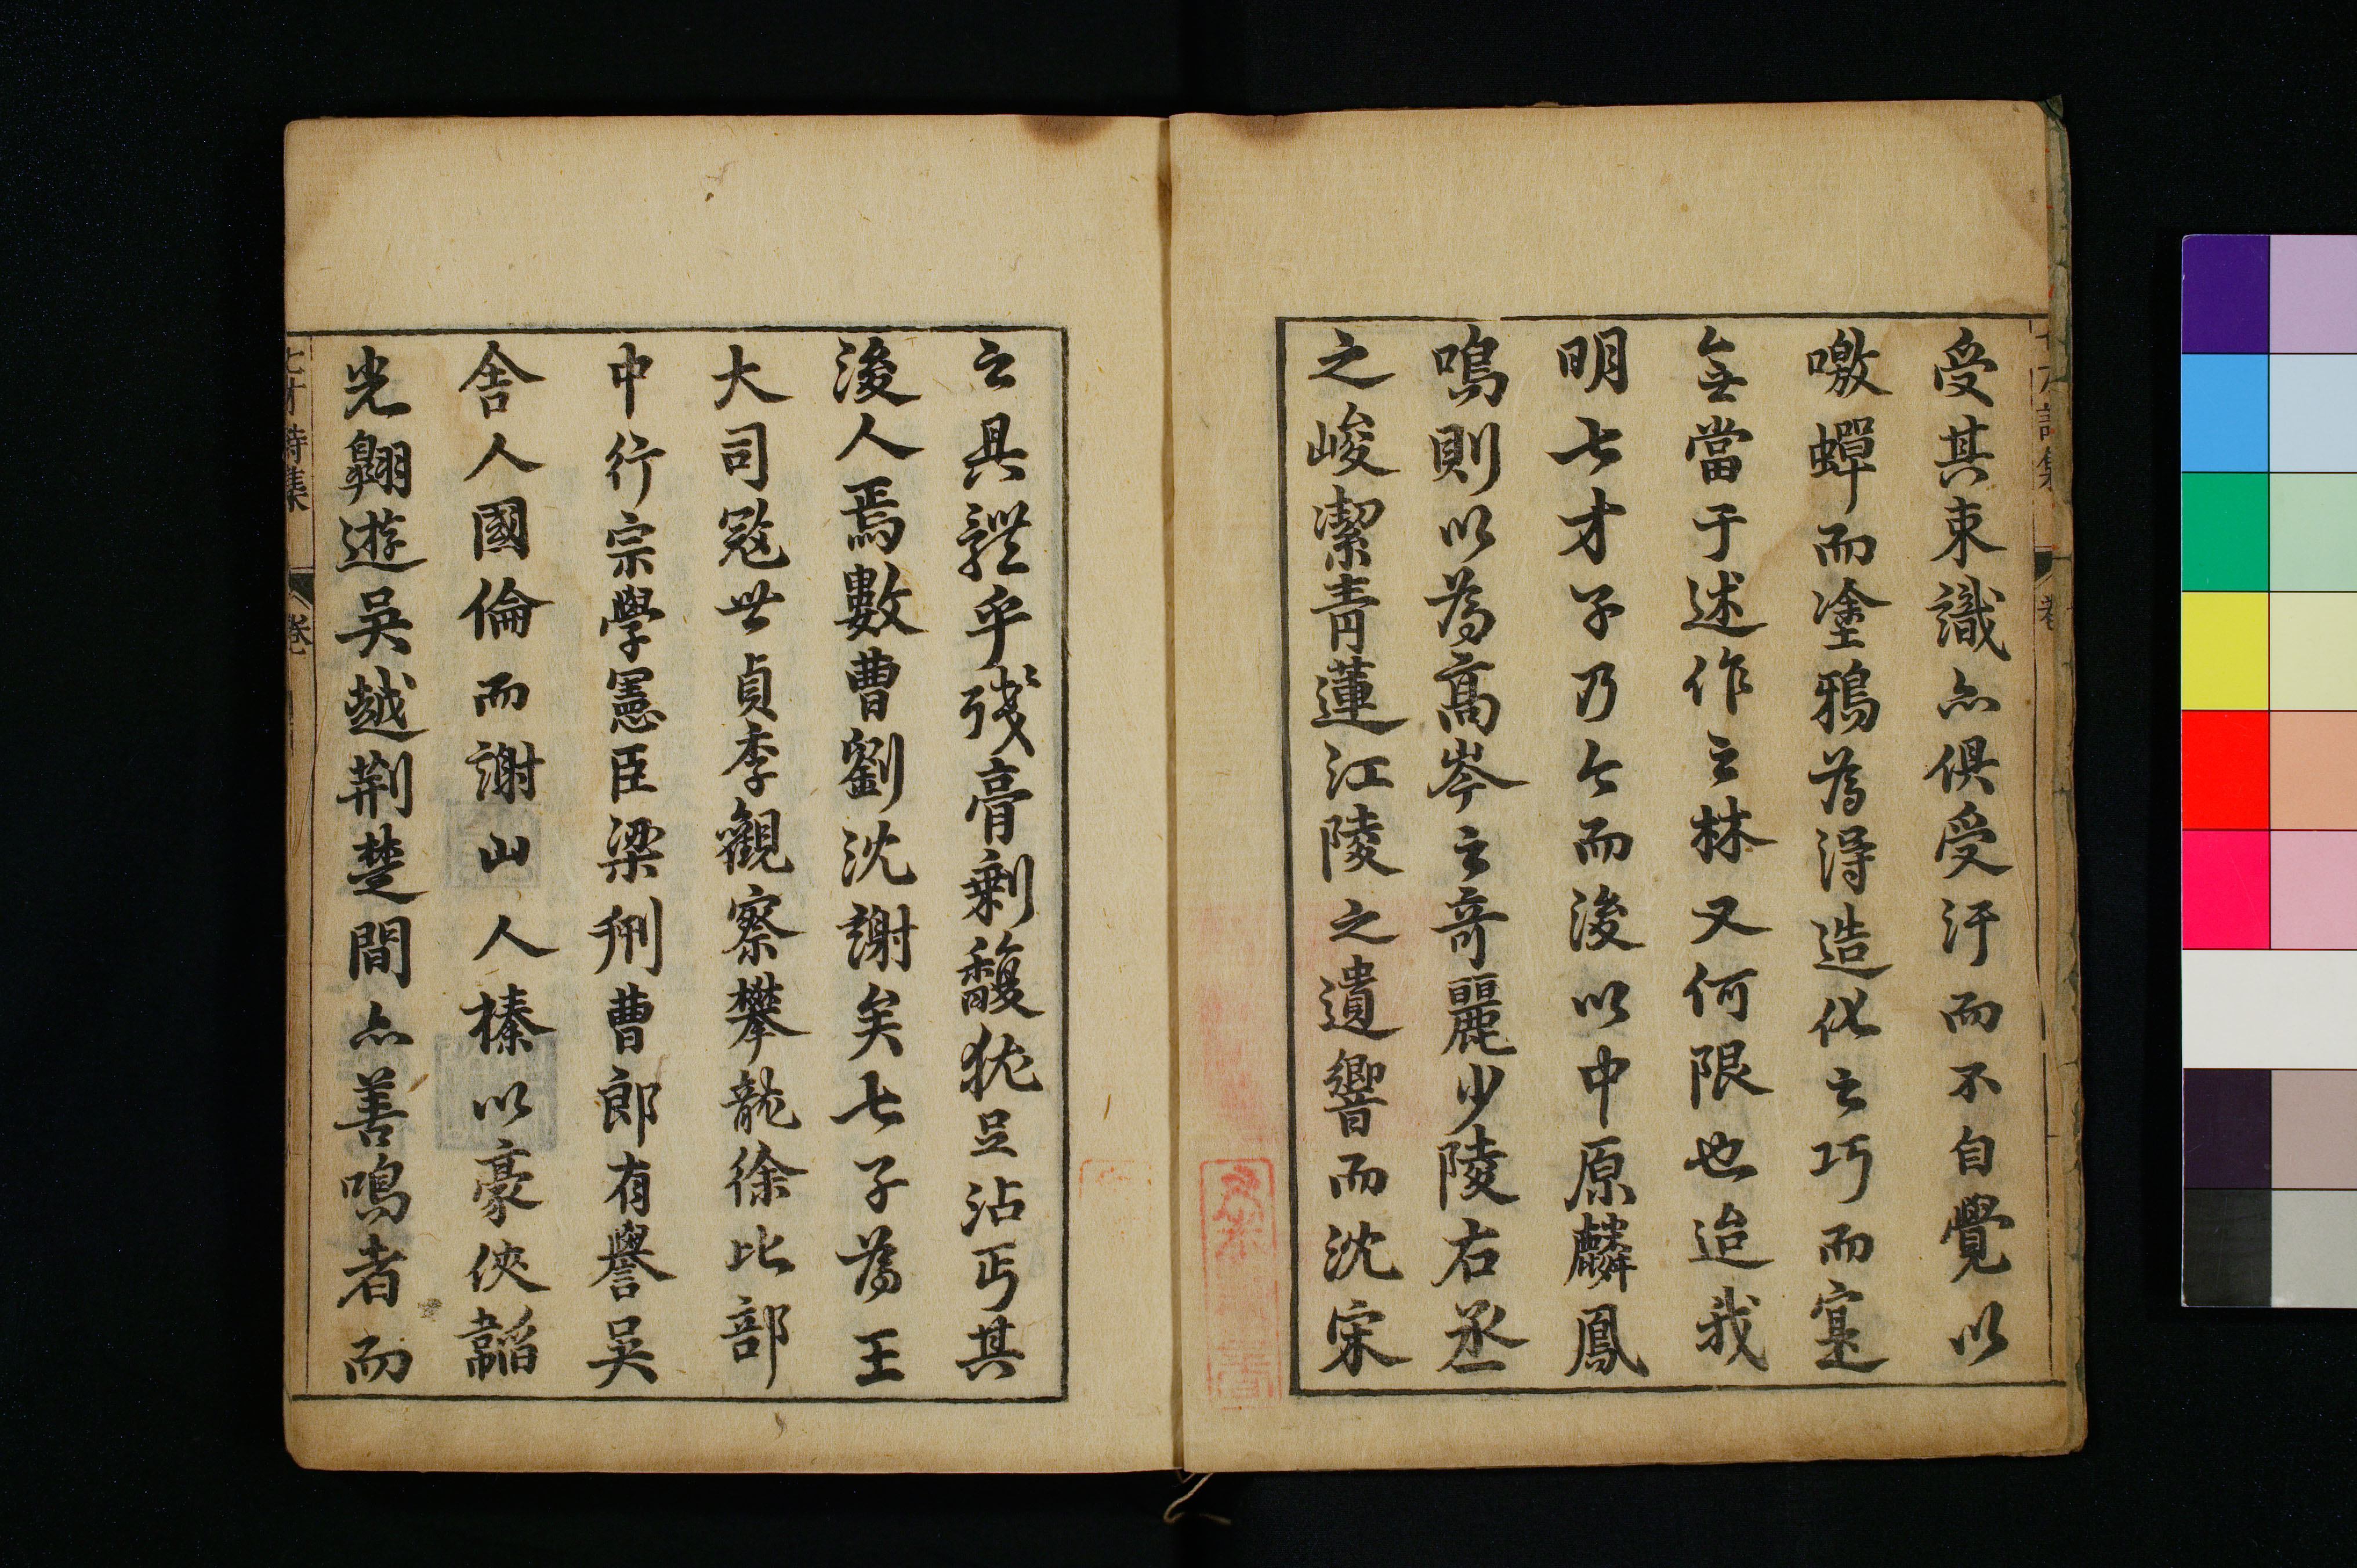 受其束識亦俱受汙而不自覺以
噭蟬而塗鴉為得造化之巧而寔
無當于述作之林又何限也迨我
明七才子乃今而後以中原麟鳳
鳴則以為高岑之奇麗少陵右丞
之峻潔青蓮江陵之遺響而沈宋
之具體乎殘膏剩馥猶足沾丐其
後人焉數曹劉沈謝矣七子為王
大司寇世貞李觀察攀龍徐比部
中行宗學憲臣梁刑曹郎有譽吳
舍人國倫而謝山人榛以豪俠韜
光翱遊吳越荊楚間亦善鳴者而
七才詩集 卷